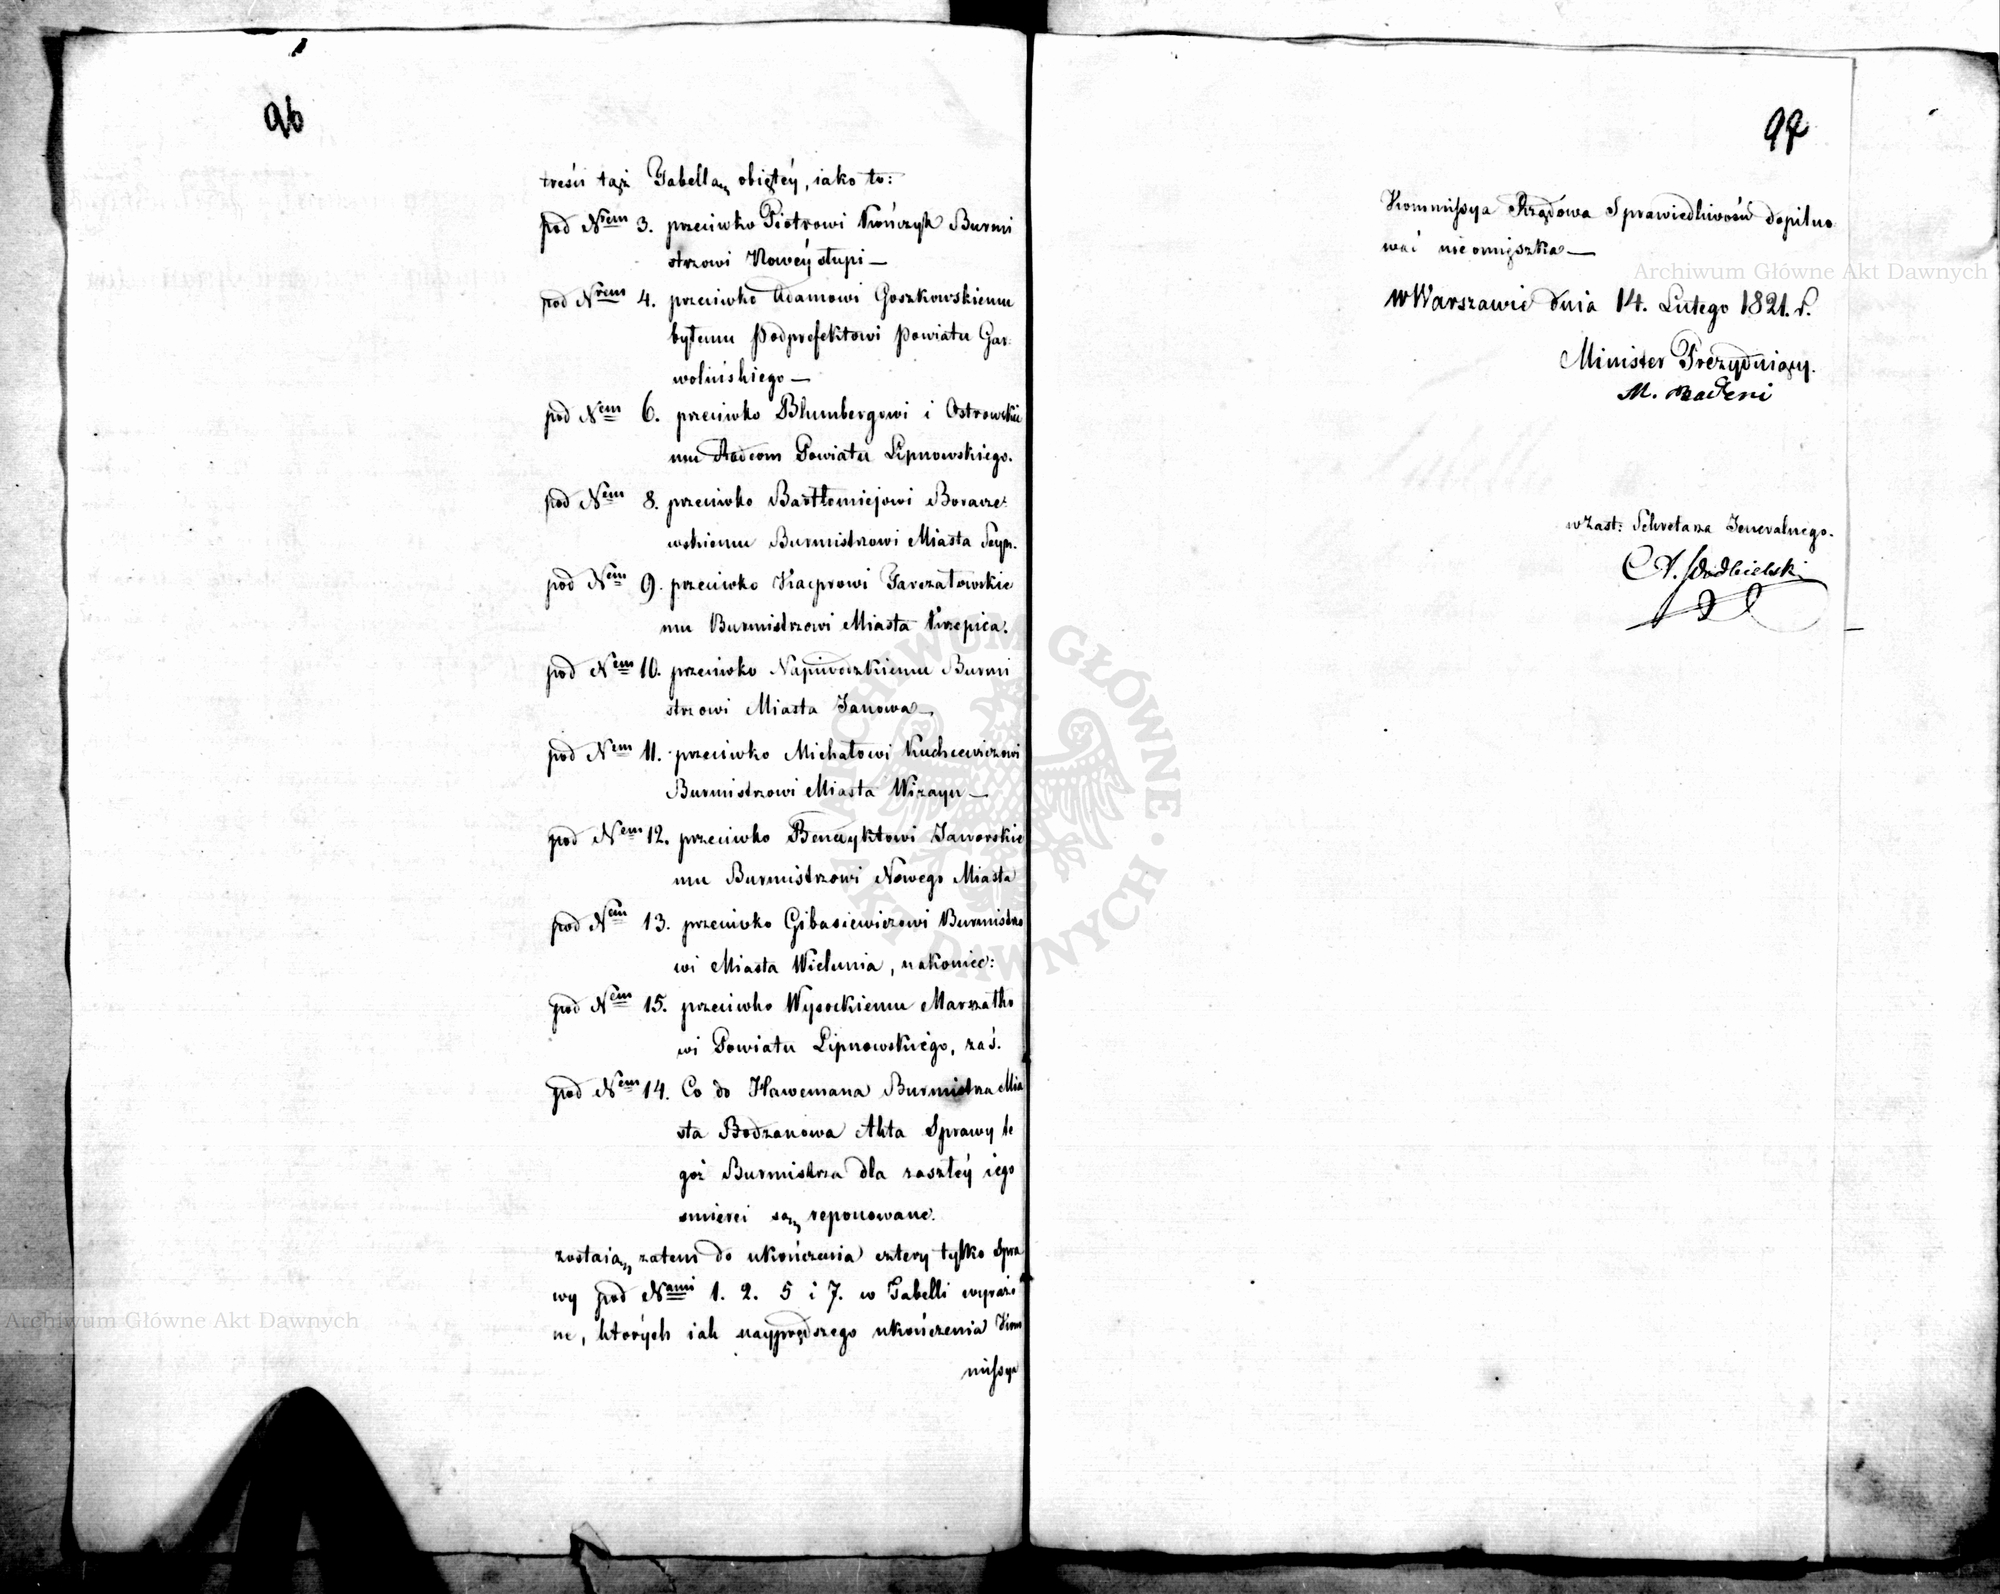 96
treści tąż Tabellą obiętéy, iako to:
pod Nrem 3. przeciwko Piotrowi Kończyk Burmi
strzowi Nowéy słupi —
pod Nrem 4. przeciwko Adamowi Goszkowskiemu
byłemu Podprefektowi Powiatu Gar-
wolińskiego —
pod Nem 6. przeciwko Blumbergowi i Ostrowskie
mu Radcom Powiatu Lipnowskiego.
pod Nem 8. przeciwko Bartłomiejowi Boracze-
wskiemu Burmistrzowi Miasta Seyn.
pod Nem 9. przeciwko Kacprowi Jarczałowskie
mu Burmistrzowi Miasta Krzepica.
pod Nem 10. przeciwko Napierodzkiemu Burmi
strzowi Miasta Janowa —
pod Nem 11. przeciwko Michałowi Kuchcewiczowi
Burmistrzowi Miasta Wizayn —
pod Nem 12. przeciwko Benedyktowi Jaworskie
mu Burmistrzowi Nowego Miasta
pod Nem 13. przeciwko Gibasiewiczowi Burmistrzo
wi Miasta Wielunia, nakoniec:
pod Nem 15. przeciwko Wysockiemu Marszałko
wi Powiatu Lipnowskiego, zaś.
pod Nem 14. Co do Hawemana Burmistrza Mia
sta Bodzanowa Akta Sprawy te
goż Burmistrza dla zaszłéy iego
smierci są reponowane.
zostaią zatem do ukończenia cztery tylko Spra
wy pod Nami 1. 2. 5 i 7. w Tabelli wyrażo
ne, których iak nayprędszego ukończenia Kom
missya
97
Kommissya Rządowa Sprawiedliwości dopilno-
wać nieomięszka —
w Warszawie dnia 14. Lutego 1821. r.
Minister Prezyduiący.
M. Badeni
w Zast: Sekretarza Jeneralnego.
Podbielski
Archiwum Główne Akt Dawnych
Archiwum Główne Akt Dawnych
ARCHIWUM GŁÓWNE AKT DAWNYCH